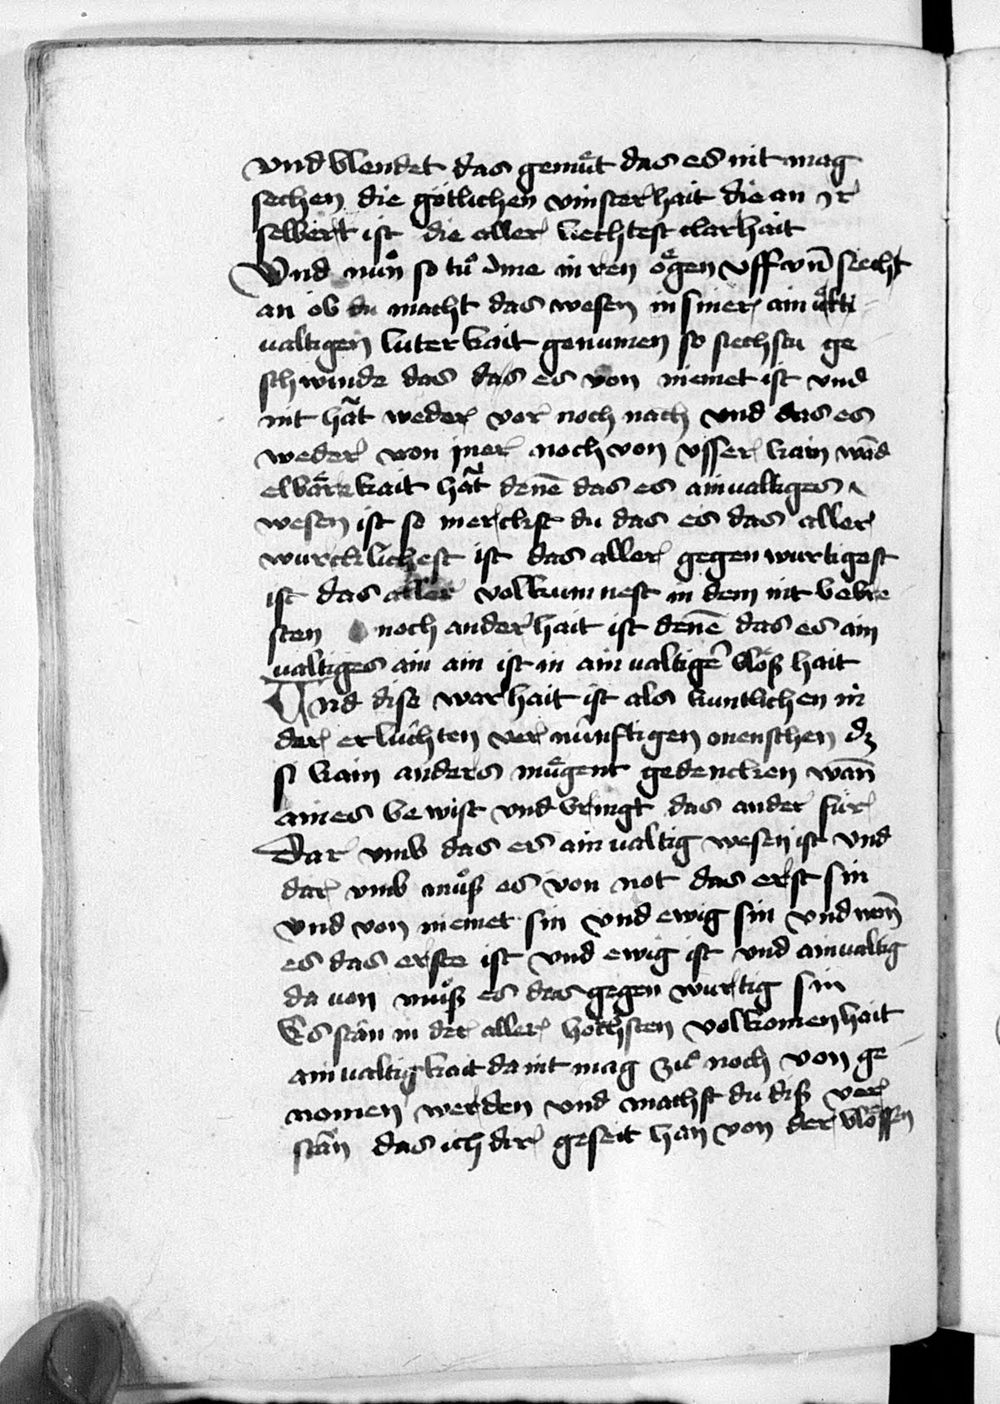 vnd blendet das gemuͤt das es nit mag
sechen die götlichen vinsterhait die an ir
selbert ist die aller liechtest clarhait
Vnd nuͦn so tuͦ dine inren oͤgen vff vn̄ siecht
an ob du macht das wesen in siner ain
ualtigen luterkait genumen so siechstu ge
schwinde das das es von niemet ist vnd
nit hāt weder vor noch nach vnd das es
weder von jner noch von vsser kain wād
elbaͤrekait hāt denē das es ainualtiges
wesen ist so merckst du das es das aller
wurcklichest ist das aller gegenwurtigest
ist das aller volkumnest in dem nit bebre
sten noch anderhait ist denē das es ain
ualtiges ain ain ist in ainualtigē bloͤßhait
Vnd dise warhait ist als kuntlichen in
der erlúchten vernúnftigen menschen dz
si kain anders muͤgent gedencken wan̄
aines bewist vnd bringt das ander für
Dar vmb das es ainualtig wesen ist vnd
dar vmb muͦß es von not das erst sin
vnd von niemet sin vnd ewig sin vnd wen̄
es das erste ist vnd ewig ist vnd ainualtig
da uon muͦß es das gegenwurtig sin
Es stān in der aller höchsten volkomenhait
ainualtigkait da nit mag zuͦ noch von ge
nomen werden vnd machst du diß ver
stān das ich dir geseit han von der bloͤssen